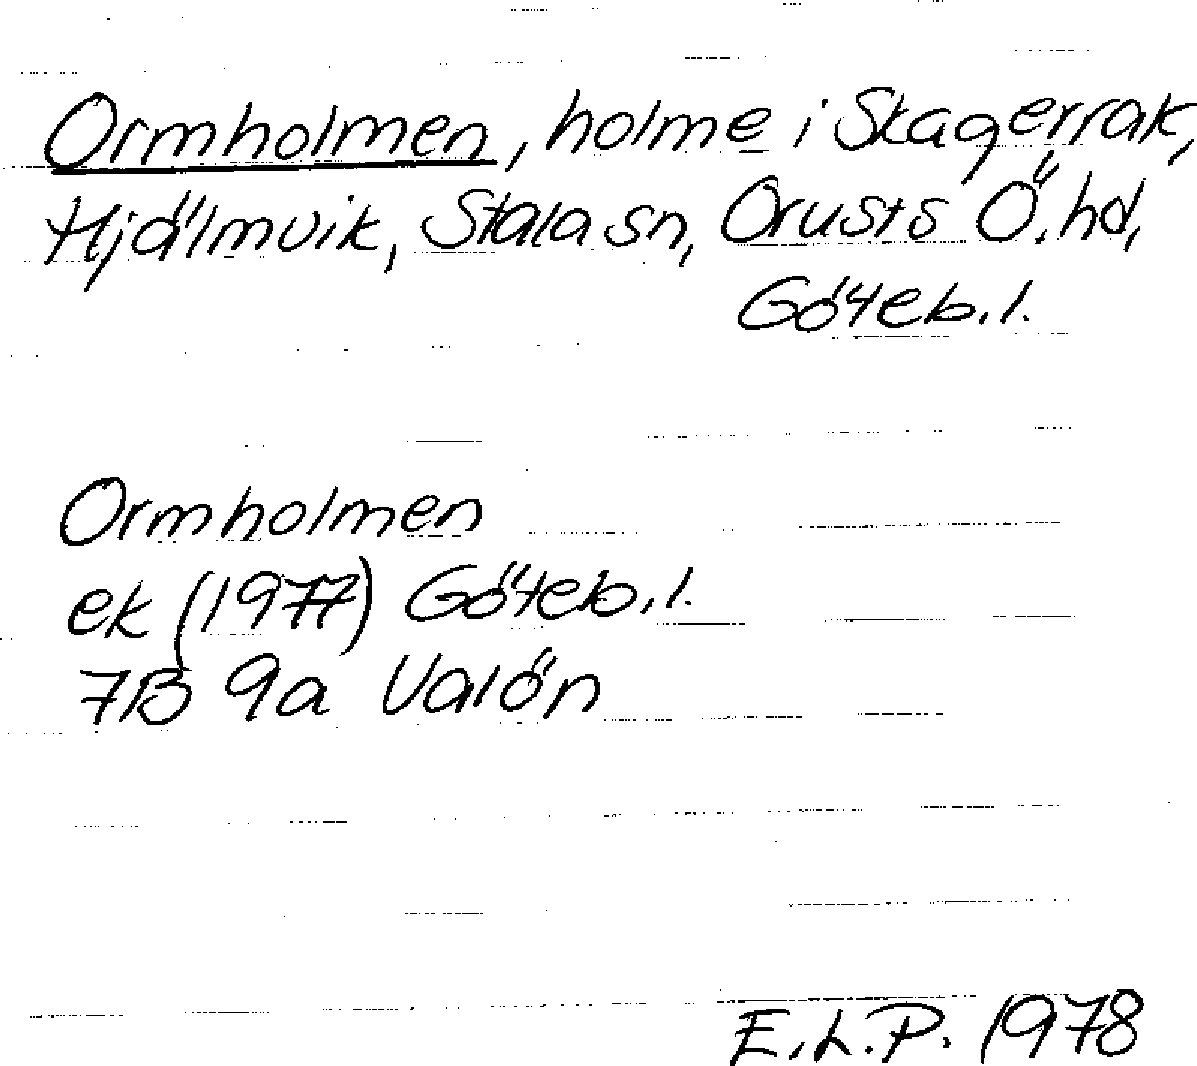 Ormholmen, holme i Skagerrak,
Hjälmvik, Stala sn, Orusts Ö. hd,
Göteb. l.
Ormholmen
ek (1977) Göteb. l.
7B 9a Valön
E.L.P. 1978